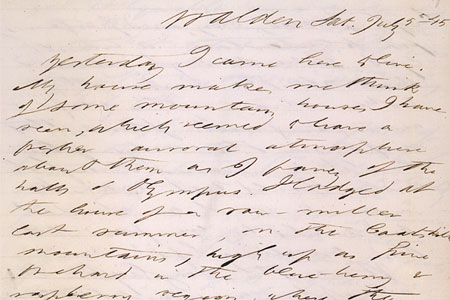 Walden Sat. July 5th-45
Yesterday I came here to live.
My house makes me think
of some mountain houses I have
seen, which seemed to have a
fresher auroral atmosphere
about them as I fancy of the
halls of Olympus. I lodged at
the house of a saw-miller
last summer, on the Caatskill
mountains, high up as Pine
orchard in the blue-berry &
raspberry region, where the